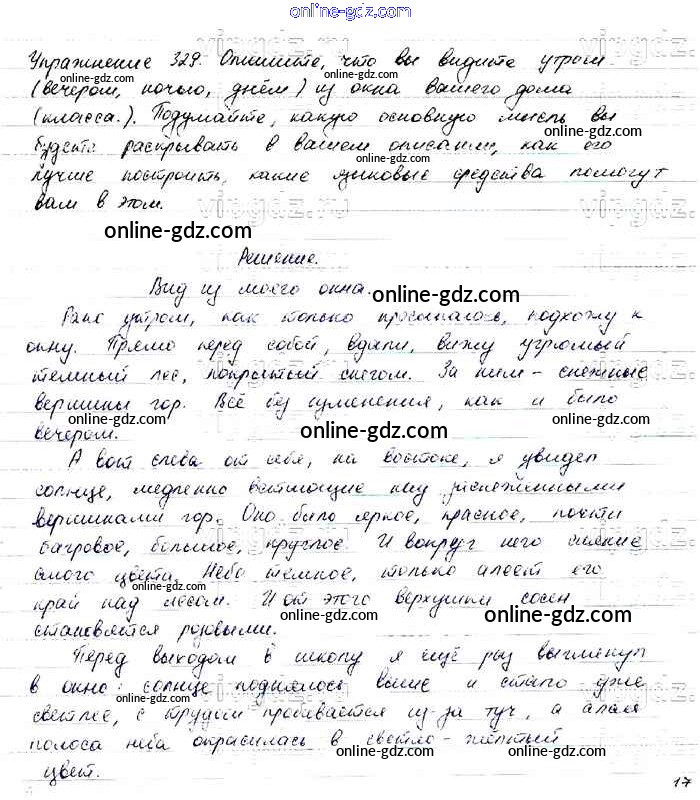 online-gdz.com
Упражнение 329. Опишите, что вы видите утром
(вечером, ночью, днём) из окна вашего дома
(класса.). Подумайте, какую основную мысль вы
будете раскрывать в вашем описании, как его
лучше построить, какие языковые средства помогут
вам в этом.
online-gdz.com
Решение.
Вид из моего окна.
online-gdz.com
Рано утром, как только просыпаюсь, подхожу к
окну. Прямо перед собой, вдали, вижу угрюмый
темный лес, покрытый снегом. За ним - снежные
вершины гор. Всё без изменения, как и было
вечером.
online-gdz.com
А вот слева от себя, на востоке, я увидел
солнце, медленно встающие над заснеженными
вершинами гор. Оно было яркое, красное, почти
багровое, большое, круглое. И вокруг него сияние
алого цвета. Небо темное, только алеет его
край над лесом. И от этого верхушки сосен
становятся розовыми.
online-gdz.com
online-gdz.com
Перед выходом в школу я ещё раз выглянул
в окно: солнце поднялось выше и стало уже
светлее, с трудом пробивается из-за туч, а алая
полоса неба окрасилась в светло-жёлтый
цвет.
online-gdz.com
online-gdz.com
17